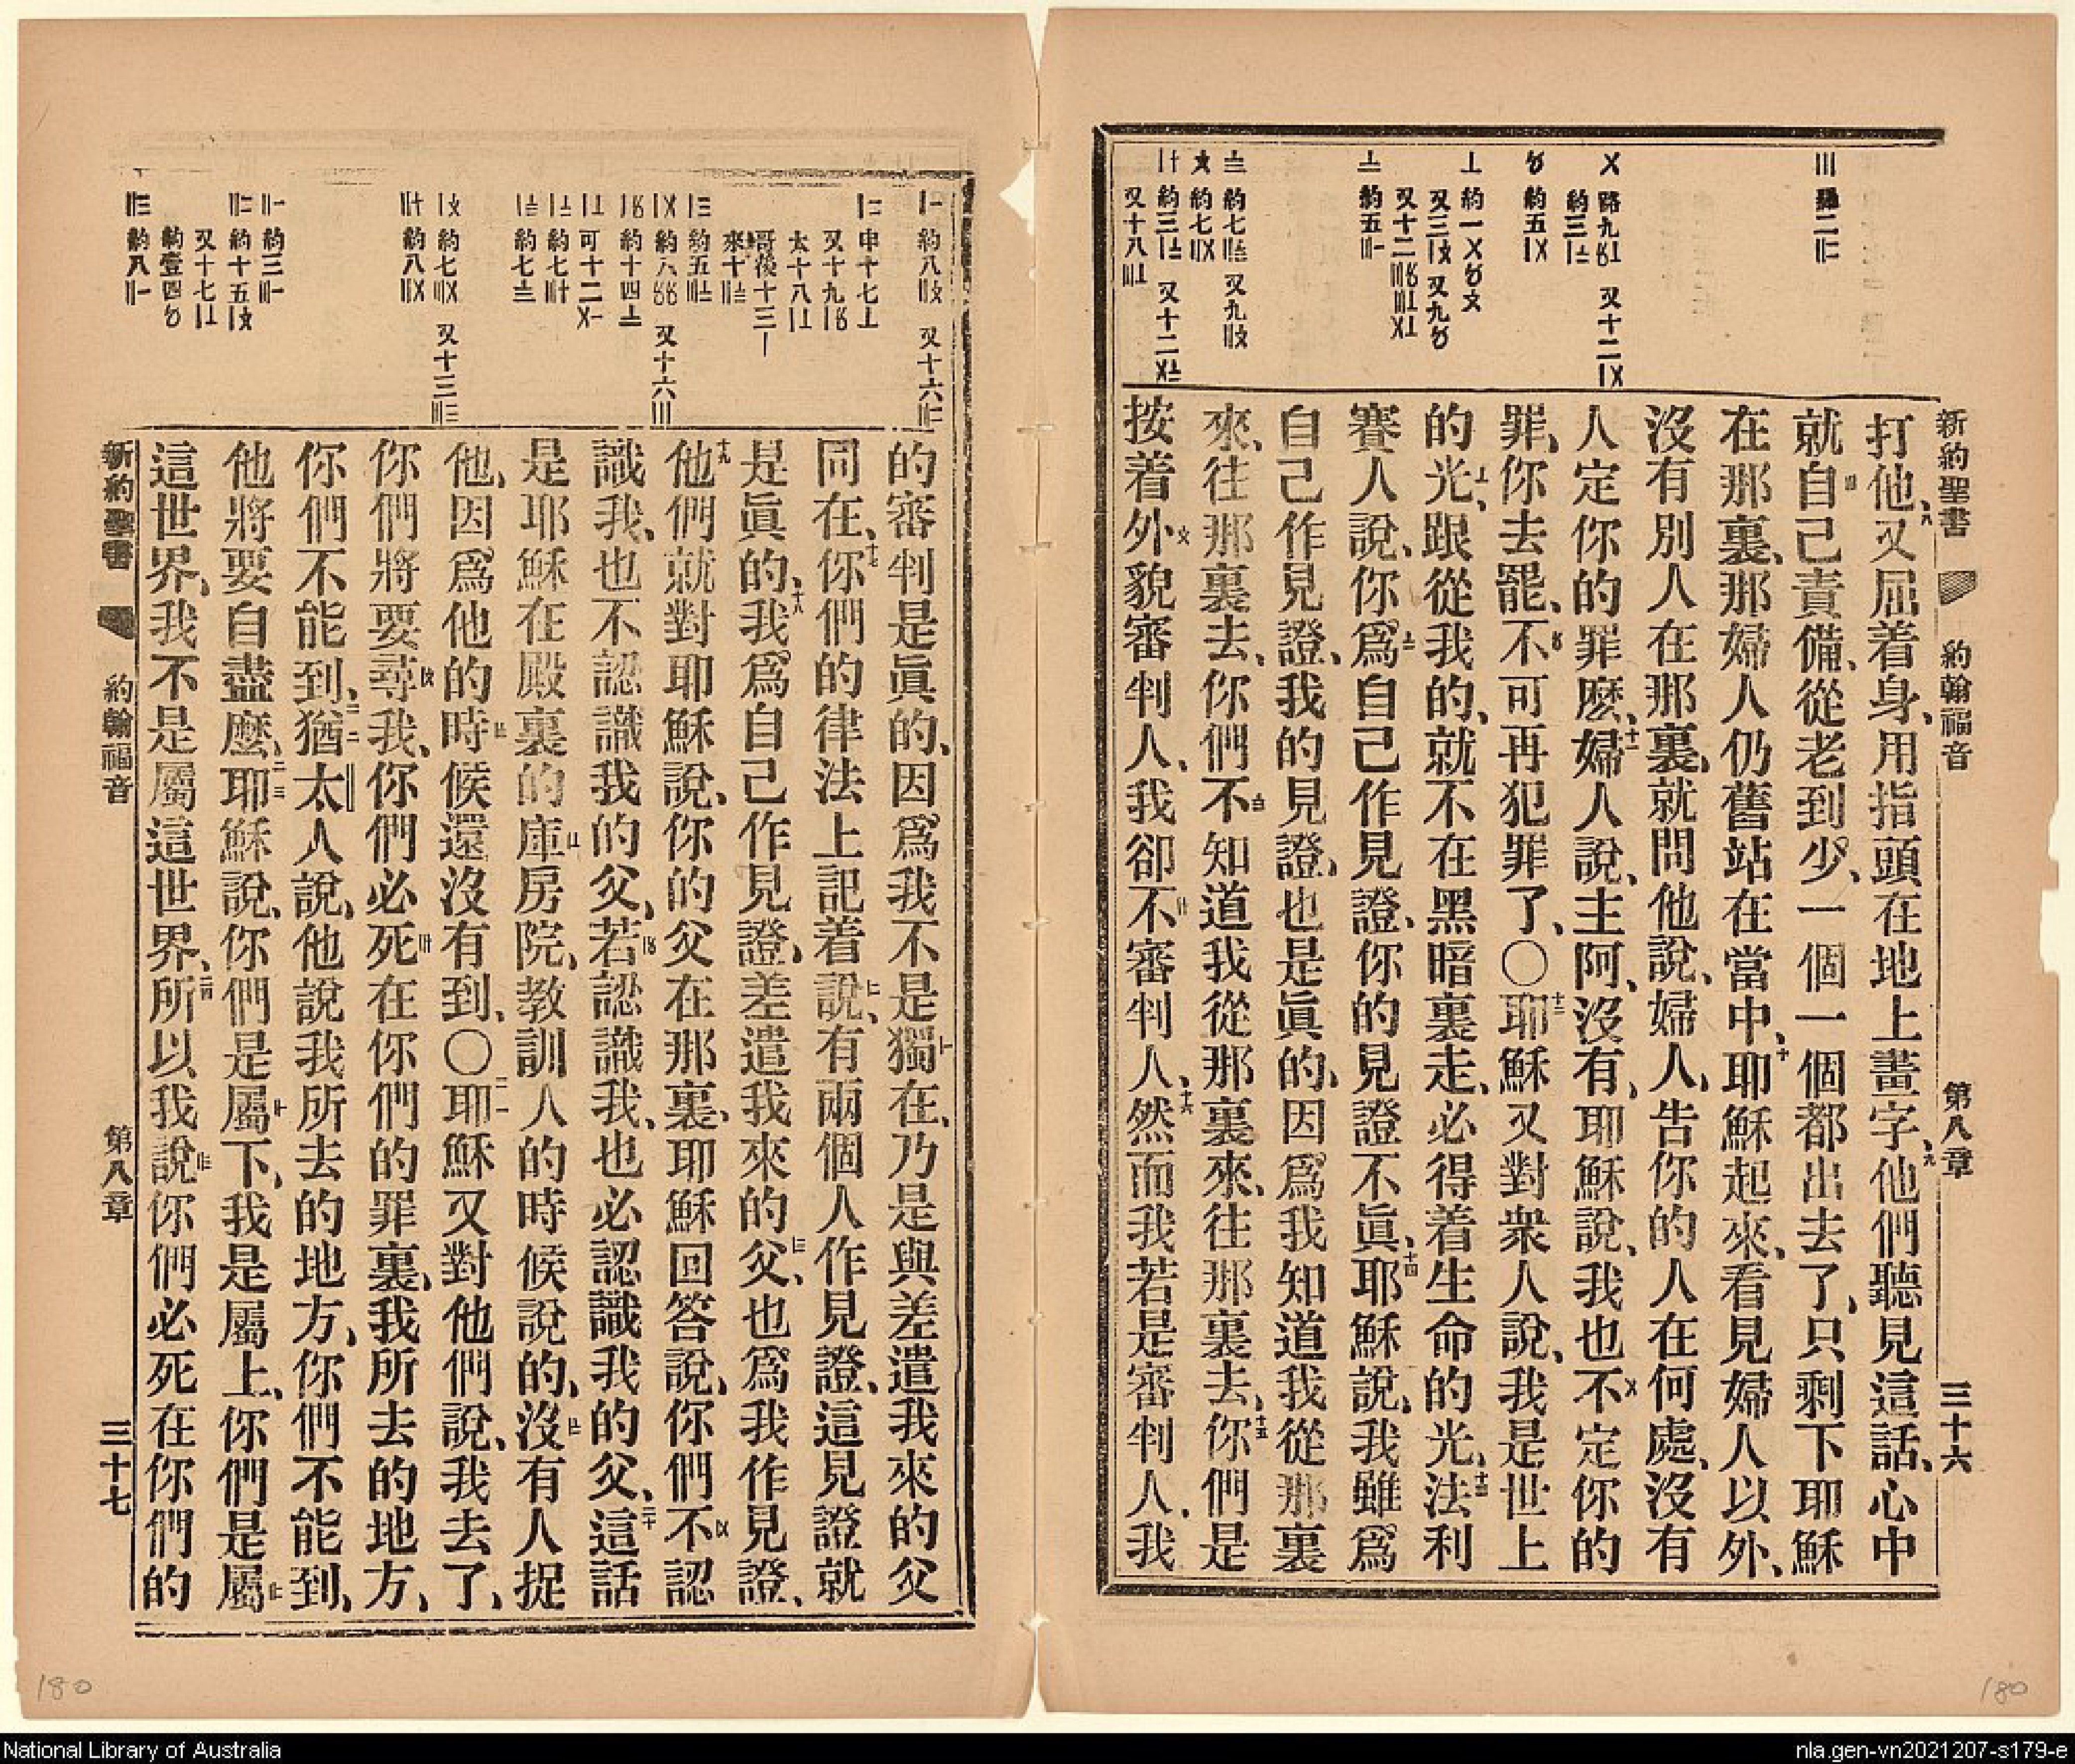 新約聖書 約翰福音 第八章 三十六
打他、八又屈着身、用指頭在地上畫字、九他們聽見這話、心中
就自己責備、從老到少、一個一個都出去了、只剩下耶穌
在那裏、那婦人仍舊站在當中、十耶穌起來、看見婦人以外、
沒有別人在那裏、就問他說、婦人、告你的人在何處、沒有
人定你的罪麽、十一婦人說、主阿、沒有、耶穌說、我也不定你的
罪、你去罷、不可再犯罪了、〇十二耶穌又對衆人說、我是世上
的光、跟從我的、就不在黑暗裏走、必得着生命的光、十三法利
賽人說、你爲自己作見證、你的見證不眞、十四耶穌說、我雖爲
自己作見證、我的見證、也是眞的、因爲我知道我從那裏
來、往那裏去、你們不知道我從那裏來、往那裏去、十五你們是
按着外貌審判人、我卻不審判人、十六然而我若是審判人、我
的審判是眞的、因爲我不是獨在、乃是與差遣我來的父
同在、十七你們的律法上記着說、有兩個人作見證、這見證就
是眞的、十八我爲自己作見證、差遣我來的父、也爲我作見證、
十九他們就對耶穌說、你的父在那裏、耶穌回答說、你們不認
識我、也不認識我的父、若認識我、也必認識我的父、二十這話
是耶穌在殿裏的庫房院、教訓人的時候說的、沒有人捉
他、因爲他的時候還沒有到、〇二一耶穌又對他們說、我去了、
你們將要尋我、你們必死在你們的罪裏、我所去的地方、
你們不能到、二二猶太人說、他說我所去的地方、你們不能到、
他將要自盡麽、二三耶穌說、你們是屬下、我是屬上、你們是屬
這世界、我不是屬這世界、二四所以我說你們必死在你們的
新約聖書 約翰福音 第八章 三十七
180
180
National Library of Australia
nla.gen-vn2021207-s179-e